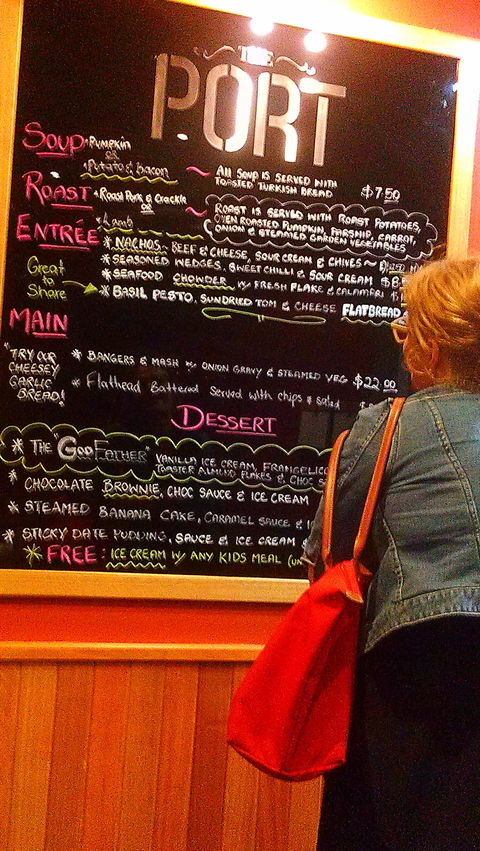 THE
PORT
SOUP • Pumpkin
OR
• Potato & Bacon
ALL SOUP IS SERVED WITH
TOASTED TURKISH BREAD $7.50
ROAST • Roast Pork & Crackle
OR
• Lamb
ROAST IS SERVED WITH ROAST POTATOES,
OVEN ROASTED PUMPKIN, PARSNIP, CARROT,
ONION & STEAMED GARDEN VEGETABLES
ENTRÉE * NACHOS ~ BEEF & CHEESE, SOUR CREAM & CHIVES ~
* SEASONED WEDGES, SWEET CHILLI & SOUR CREAM $8.
* SEAFOOD CHOWDER W/ FRESH FLAKE & CALAMARI
* BASIL PESTO, SUNDRIED TOM & CHEESE FLATBREAD
Great
to
Share
MAIN
"TRY OUR
CHEESEY
GARLIC
BREAD!
* BANGERS & MASH W/ ONION GRAVY & STEAMED VEG $22.00
* Flathead Battered Served with chips & salad
DESSERT
* THE "GODFATHER" VANILLA ICE CREAM, FRANGELICO
TOASTED ALMOND FLAKES & CHOC S
* CHOCOLATE BROWNIE, CHOC SAUCE & ICE CREAM
* STEAMED BANANA CAKE, CARAMEL SAUCE & I
* STICKY DATE PUDDING, SAUCE & ICE CREAM $
* FREE: ICE CREAM W/ ANY KIDS MEAL (UN